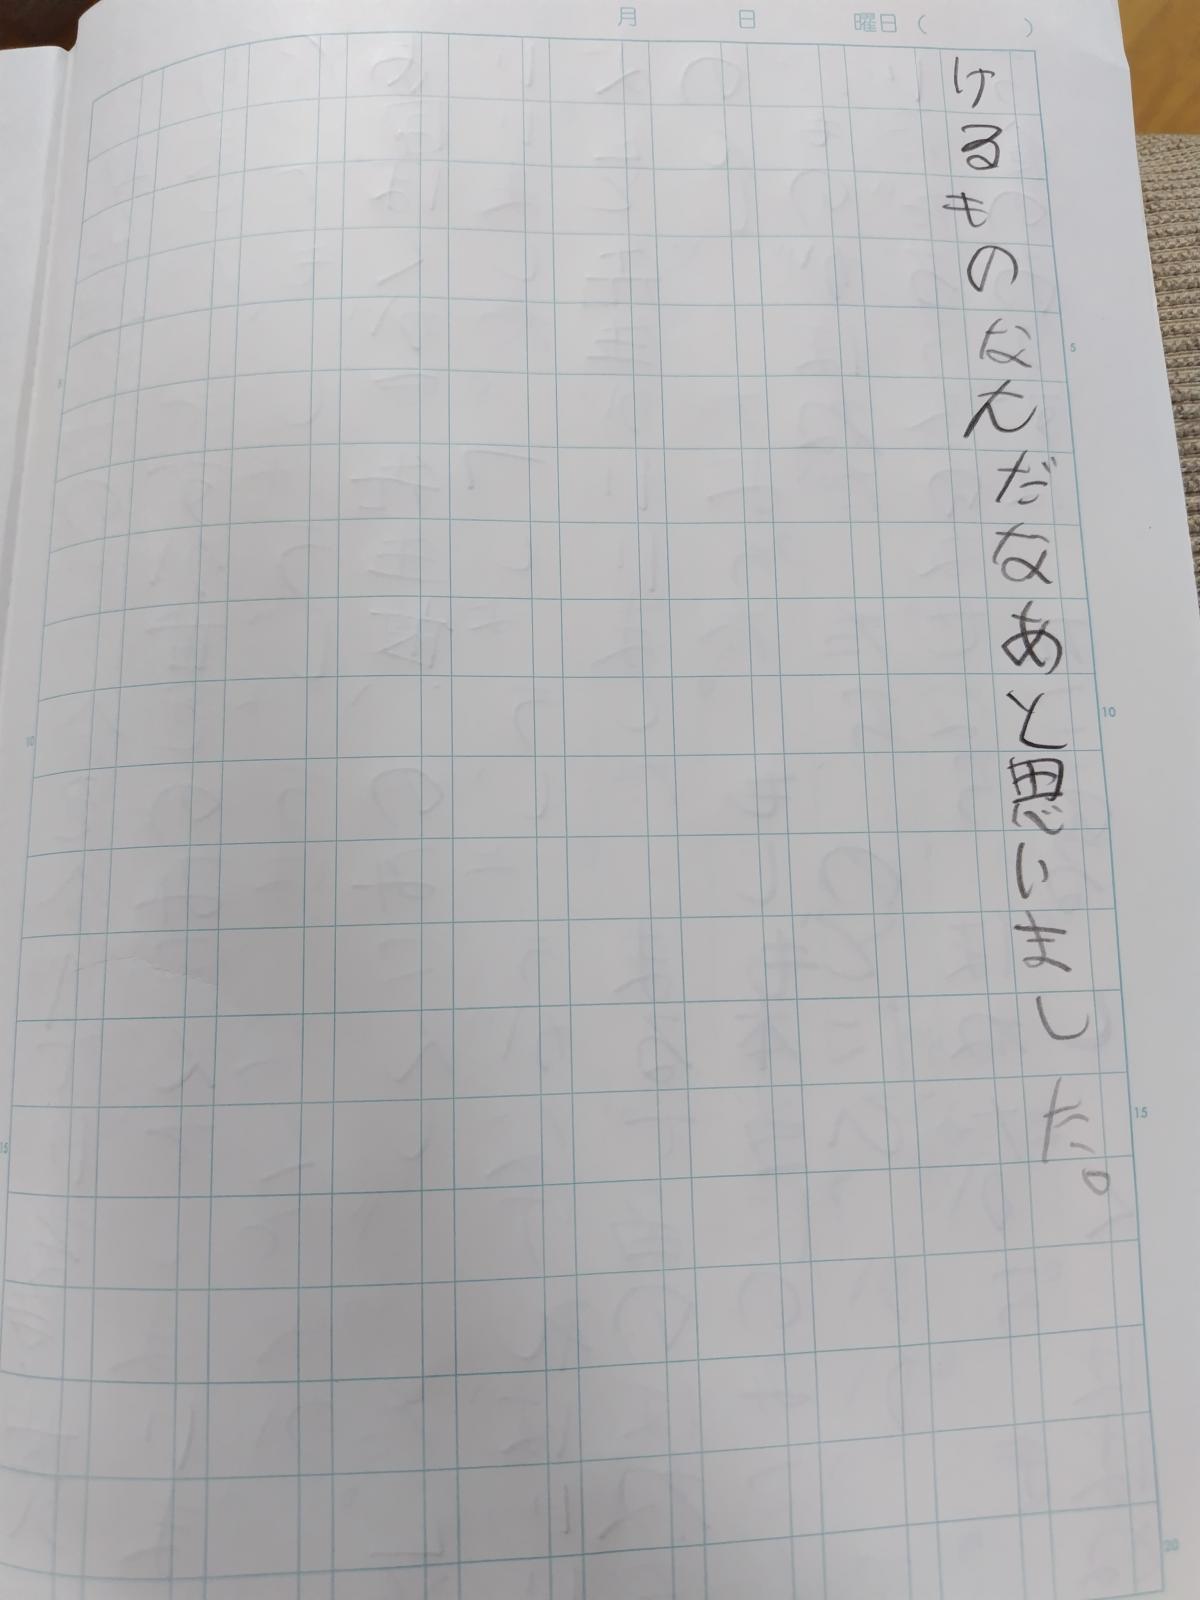 月 日 曜日（ ）
けるものなんだなあと思いました。
5
10
15
20
5
10
15